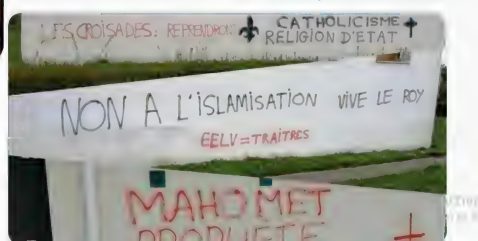 LES CROISADES: REPRENDRONT
CATHOLICISME
RELIGION D'ETAT
NON A L'ISLAMISATION VIVE LE ROY
EELV = TRAÎTRES
MAHOMET
PROPHETE